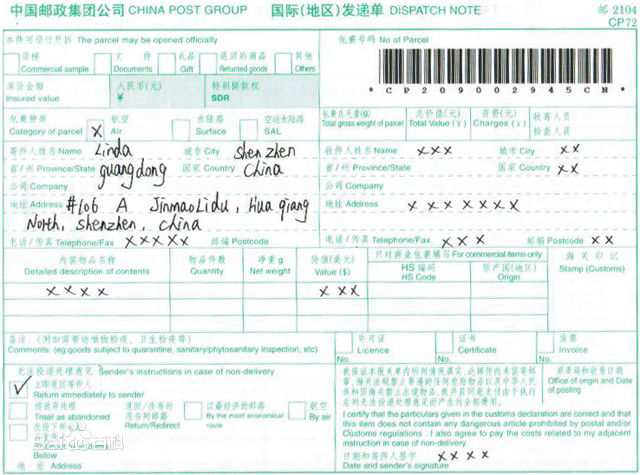 中国邮政集团公司 CHINA POST GROUP 国际(地区)发递单 DISPATCH NOTE 邮 2104
CP72
本件可径行开拆 The parcel may be opened officially
包裹号码 No of Parcel
货样 Commercial sample 文件 Documents 礼品 Gift 退回的商品 Returned goods 其他 Others
* C P 2 0 9 0 0 2 9 4 5 C N *
保价金额 Insured value 人民币(元) ¥ 特别提款权 SDR
包裹种类 Category of parcel X 航空 Air 水陆路 Surface 空运水陆路 SAL
包裹总毛重(g) Total gross weight of parcel 总价值(元) Total Value (¥) 资费(元) Charges (¥) 收寄人员 检查人员
寄件人姓名 Name Linda 城市 City Shenzhen
省/州 Province/State guangdong 国家 Country China
公司 Company
地址 Address #106 A JinmaoLidu, Huaqiang
North, Shenzhen, China
电话/传真 Telephone/Fax XXXXX 邮编 Postcode
收件人姓名 Name XXX 城市 City XX
省/州 Province/State 国家 Country XX
公司 Company
地址 Address XXXXXXX
电话/传真 Telephone/Fax XXX 邮编 Postcode XX
内装物品名称 Detailed description of contents 物品件数 Quantity 净重 g Net weight 价值(美元) Value ($)
只对商业包裹填写 For commercial items only
HS 编码 HS Code 原产国(地区) Origin
海关印记 Stamp (Customs)
XXXX XXX
备注 (例如需要动植物检疫、卫生检疫等)
Comments: (eg:goods subject to quarantine, sanitary/phytosanitary inspection, etc)
许可证 Licence No. 证书 Certificate No. 发票 Invoice No.
无法投递处理意见 Sender's instructions in case of non-delivery
✓ 立即退回寄件人
Return immediately to sender
按放弃处理 Treat as abandoned
退回/改寄时用右列邮路 Return/Redirect
以最经济的邮路 By the most economical route
航空 By air
Below
地 址 Address
我保证本报关单内所列情属实,此邮件内未装寄邮
章、海关法规禁止寄递的任何危险物品以及中华人民
共和国海关禁止出境物品,我并且同意支付由于执行
在列无法投递处理意见而产生的全部费用。
I certify that the particulars given in the customs declaration are correct and that
this item does not contain any dangerous article prohibited by postal and/or
Customs regulations . I also agree to pay the costs related to my adjacent
instruction in case of non-delivery.
日期和寄件人签字 XXXX
Date and sender's signature
原寄局和收寄日期
Office of origin and Date of posting